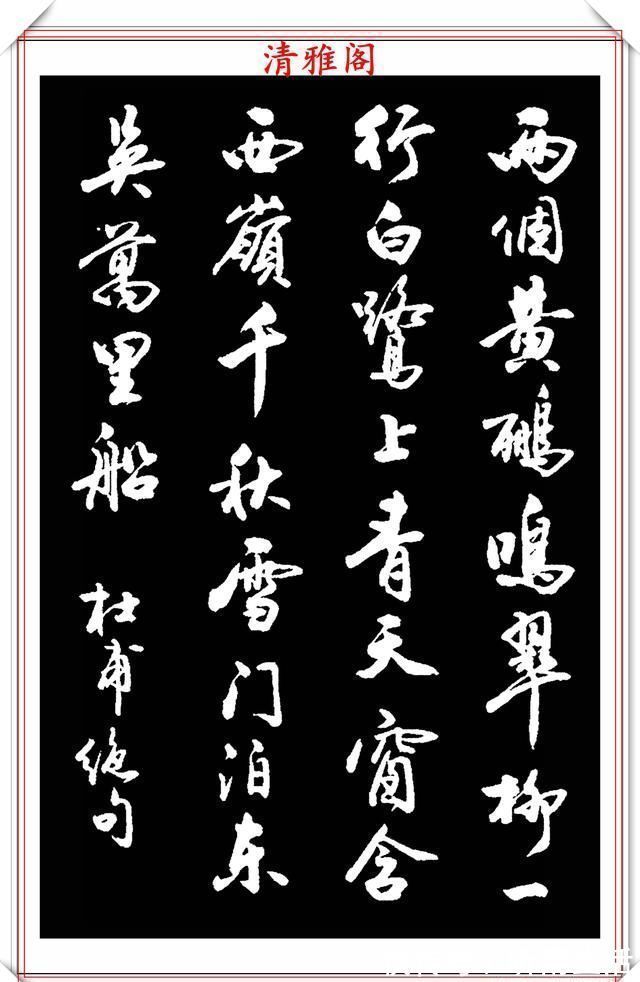 清雅阁
两個黄鹂鳴翠柳一
行白鹭上青天窗含
西嶺千秋雪门泊东
吴萬里船
杜甫绝句